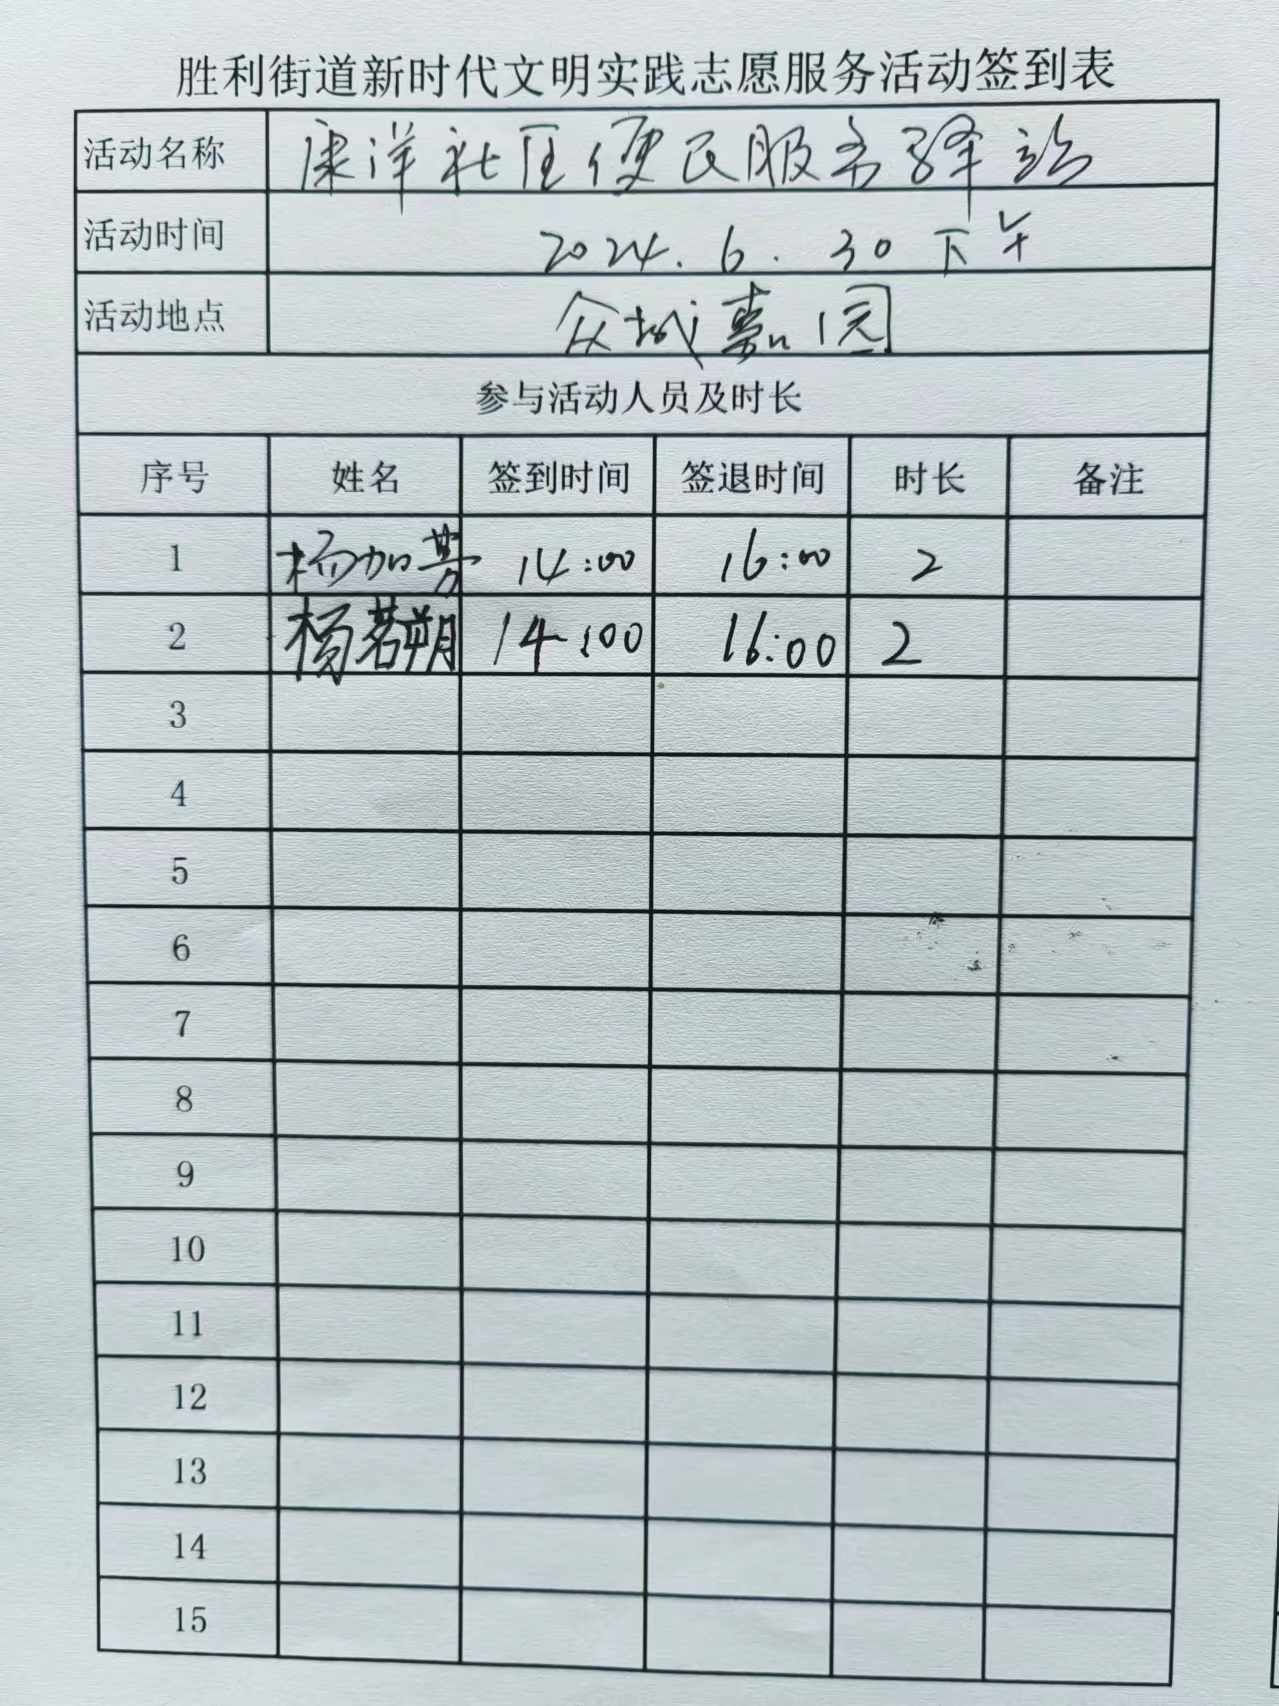 胜利街道新时代文明实践志愿服务活动签到表
活动名称 康洋社区便民服务驿站
活动时间 2024.6.30下午
活动地点 众城嘉园
参与活动人员及时长
序号 姓名 签到时间 签退时间 时长 备注
1 杨加芳 14:00 16:00 2
2 杨若朔 14:00 16:00 2
3
4
5
6
7
8
9
10
11
12
13
14
15